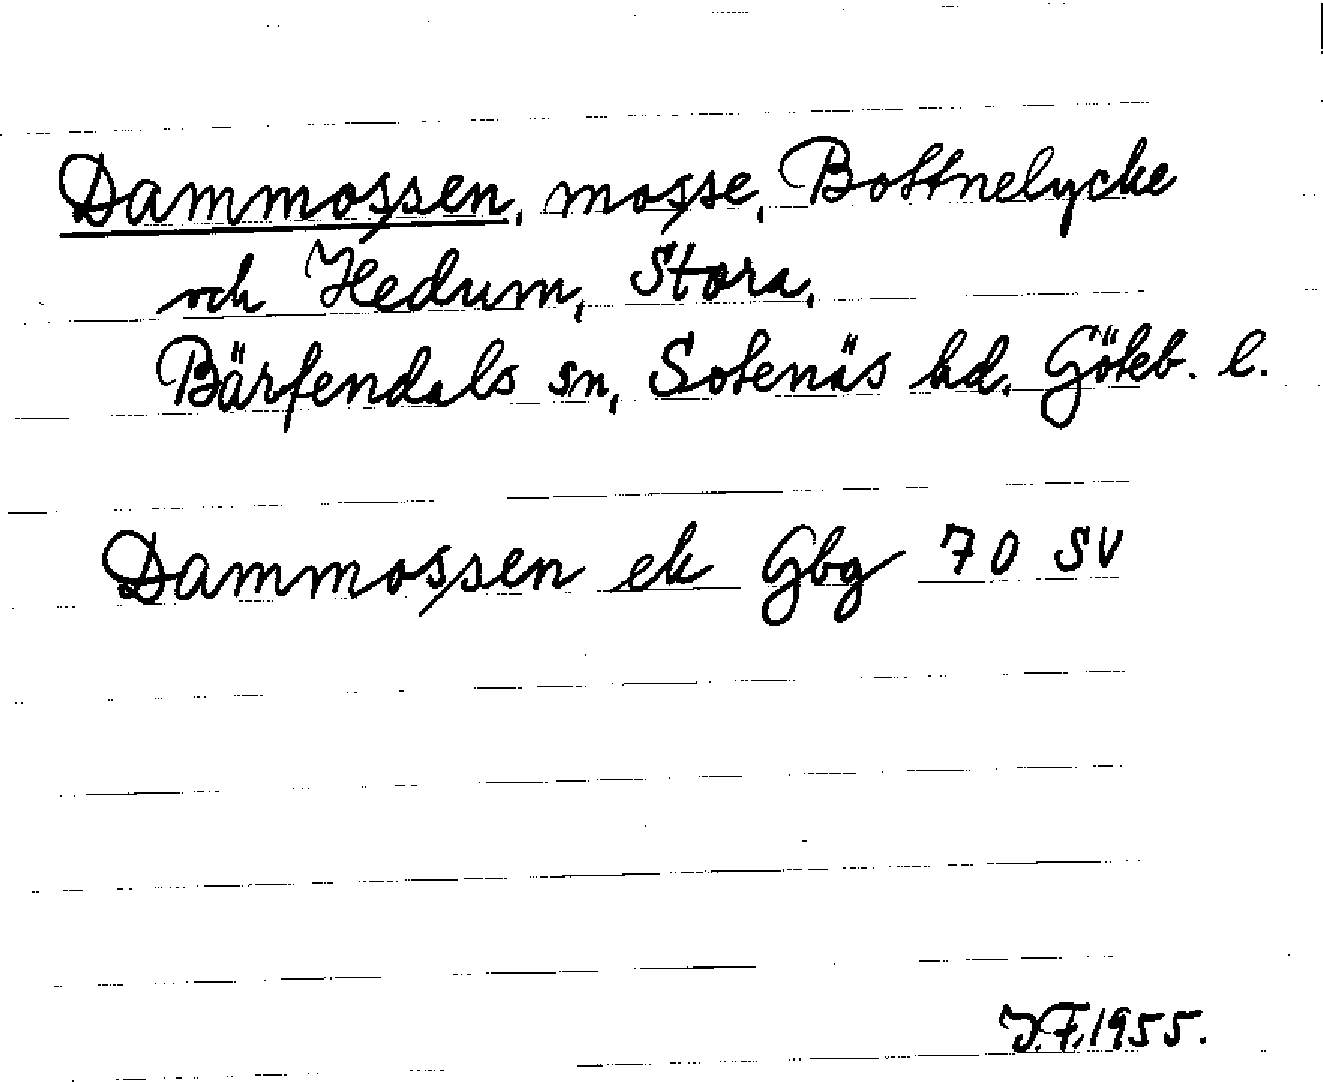 Dammossen, mosse, Bottnelycke
och Hedum, Stora,
Bärfendals sn, Sotenäs hd. Göteb. l.
Dammossen ek Gbg 70 SV
J.F. 1955.